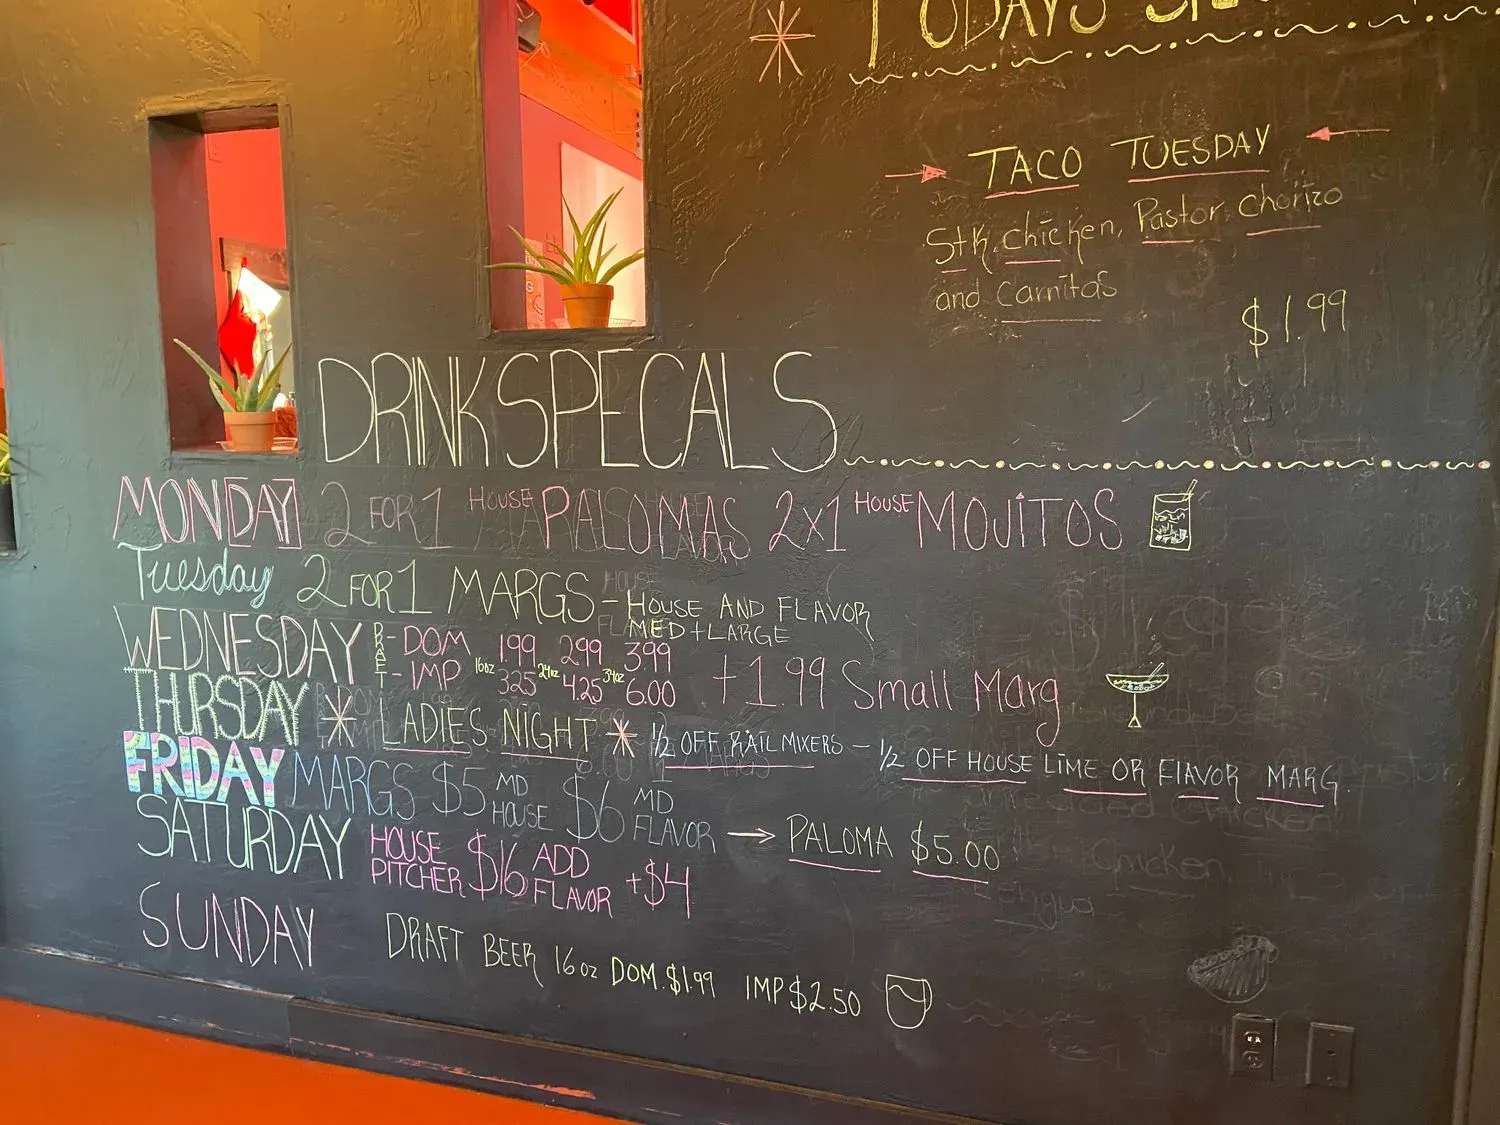 TODAYS
TACO TUESDAY
Stk, chicken, Pastor, chorizo
and Carnitas
$1.99
DRINK SPECALS
MONDAY 2 FOR 1 HOUSE PALOMAS 2x1 HOUSE MOJITOS
Tuesday 2 FOR 1 MARGS - HOUSE AND FLAVOR
MED + LARGE
WEDNESDAY DRAFT - DOM 1.99 299 399
- IMP 16oz 325 24oz 4.25 34oz 6.00 + 1.99 Small Marg
THURSDAY * LADIES NIGHT * 1/2 OFF RAIL MIXERS - 1/2 OFF HOUSE LIME OR FLAVOR MARG.
FRIDAY MARGS $5 MD HOUSE $6 MD FLAVOR → PALOMA $5.00
SATURDAY HOUSE PITCHER $16 ADD FLAVOR +$4
SUNDAY DRAFT BEER 16oz DOM. $1.99 IMP $2.50